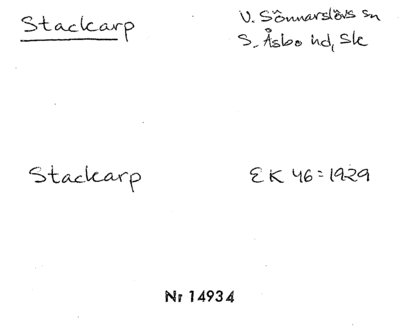 Stackarp
V. Sönnarslövs sn
S. Åsbo hd, Sk
Stackarp
EK 46 = 1929
Nr 14934